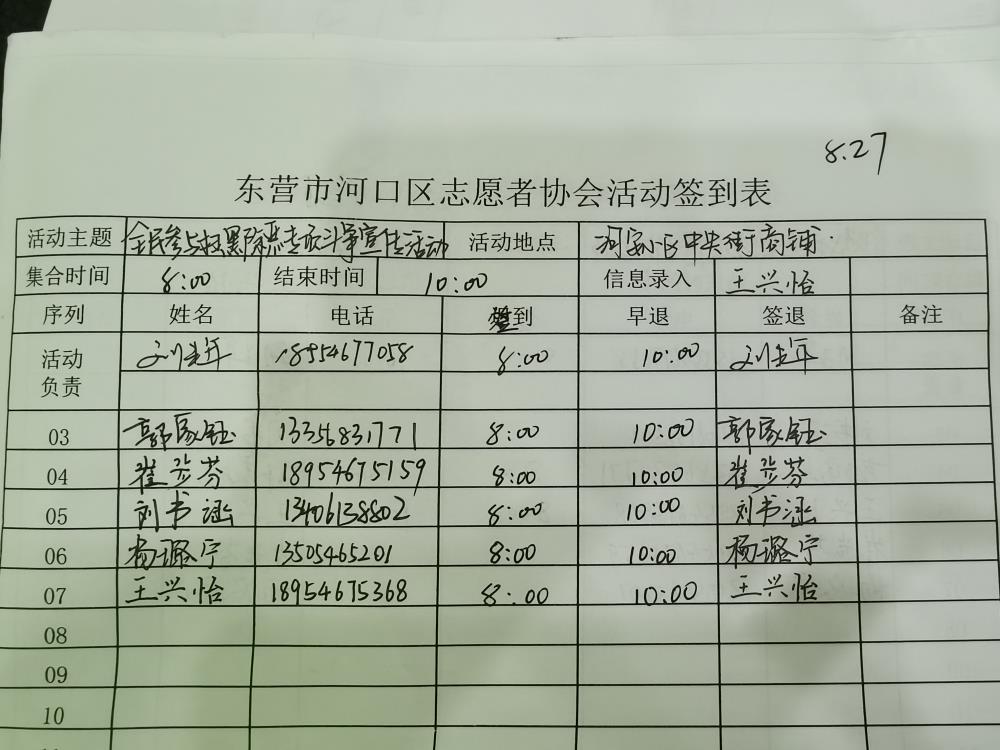 8.27
东营市河口区志愿者协会活动签到表
活动主题 全民参与扫黑除恶专项斗争宣传活动 活动地点 河安小区中央街商铺
集合时间 8:00 结束时间 10:00 信息录入 王兴怡
序列 姓名 电话 签到 早退 签退 备注
活动负责 刘 年 18954677058 8:00 10:00 刘 年
03 郭家钰 13356831771 8:00 10:00 郭家钰
04 崔 芬 18954675159 8:00 10:00 崔 芬
05 刘书涵 13406138802 8:00 10:00 刘书涵
06 杨璐宁 13505465201 8:00 10:00 杨璐宁
07 王兴怡 18954675368 8:00 10:00 王兴怡
08
09
10